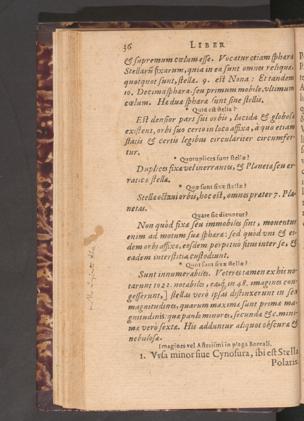 36 LIBER
& supremum cœlum esse. Vocatur etiam sphæra
Stellarũ fixarum, quia in ea sunt omnes reliquæ
quotquot sunt, stellæ. 9. est Nona: Et tandem
10. Decima sphæra, seu primum mobile, ultimum
cœlum. Hæ duæ sphæræ sunt sine stellis.
* Quid est stella?
Est densior pars sui orbis, lucida & globosa
existens, orbi suo certo in loco affixa, à quo etiam
statis & certis legibus circulariter circumfer
tur.
* Quotuplices sunt stellæ?
Duplices fixæ vel inerrantes, & Planetæ seu er
raticæ stellæ.
* Quæ sunt fixæ stellæ?
Stellæ octavi orbis, hoc est, omnes præter 7. Pla-
netas.
Quare sic dicuntur?
Non quòd fixæ seu immobiles sint, moventur
enim ad motum suæ sphæræ: sed quòd uni & ei-
dem orbi affixæ, eisdem perpetuò situ inter se, &
eadem interstitia custodiunt.
* Quot sunt fixæ stellæ?
Sunt innumerabiles. Vetres tamen ex his no-
tarunt 1022. notabiles, easq; in 48. imagines con-
gesserunt,] stellas verò ipsas distinxerunt in sex
magnitudines, quarum maximæ sunt primæ ma-
gnitudinis: quæ paulò minores, secundæ &c. mini-
mæ verò sextæ. His adduntur aliquot obscuræ &
nebulosæ.
Imagines vel Asterismi in plaga Boreali.
1. Vrsa minor siue Cynosura, ibi est Stella
Polaris